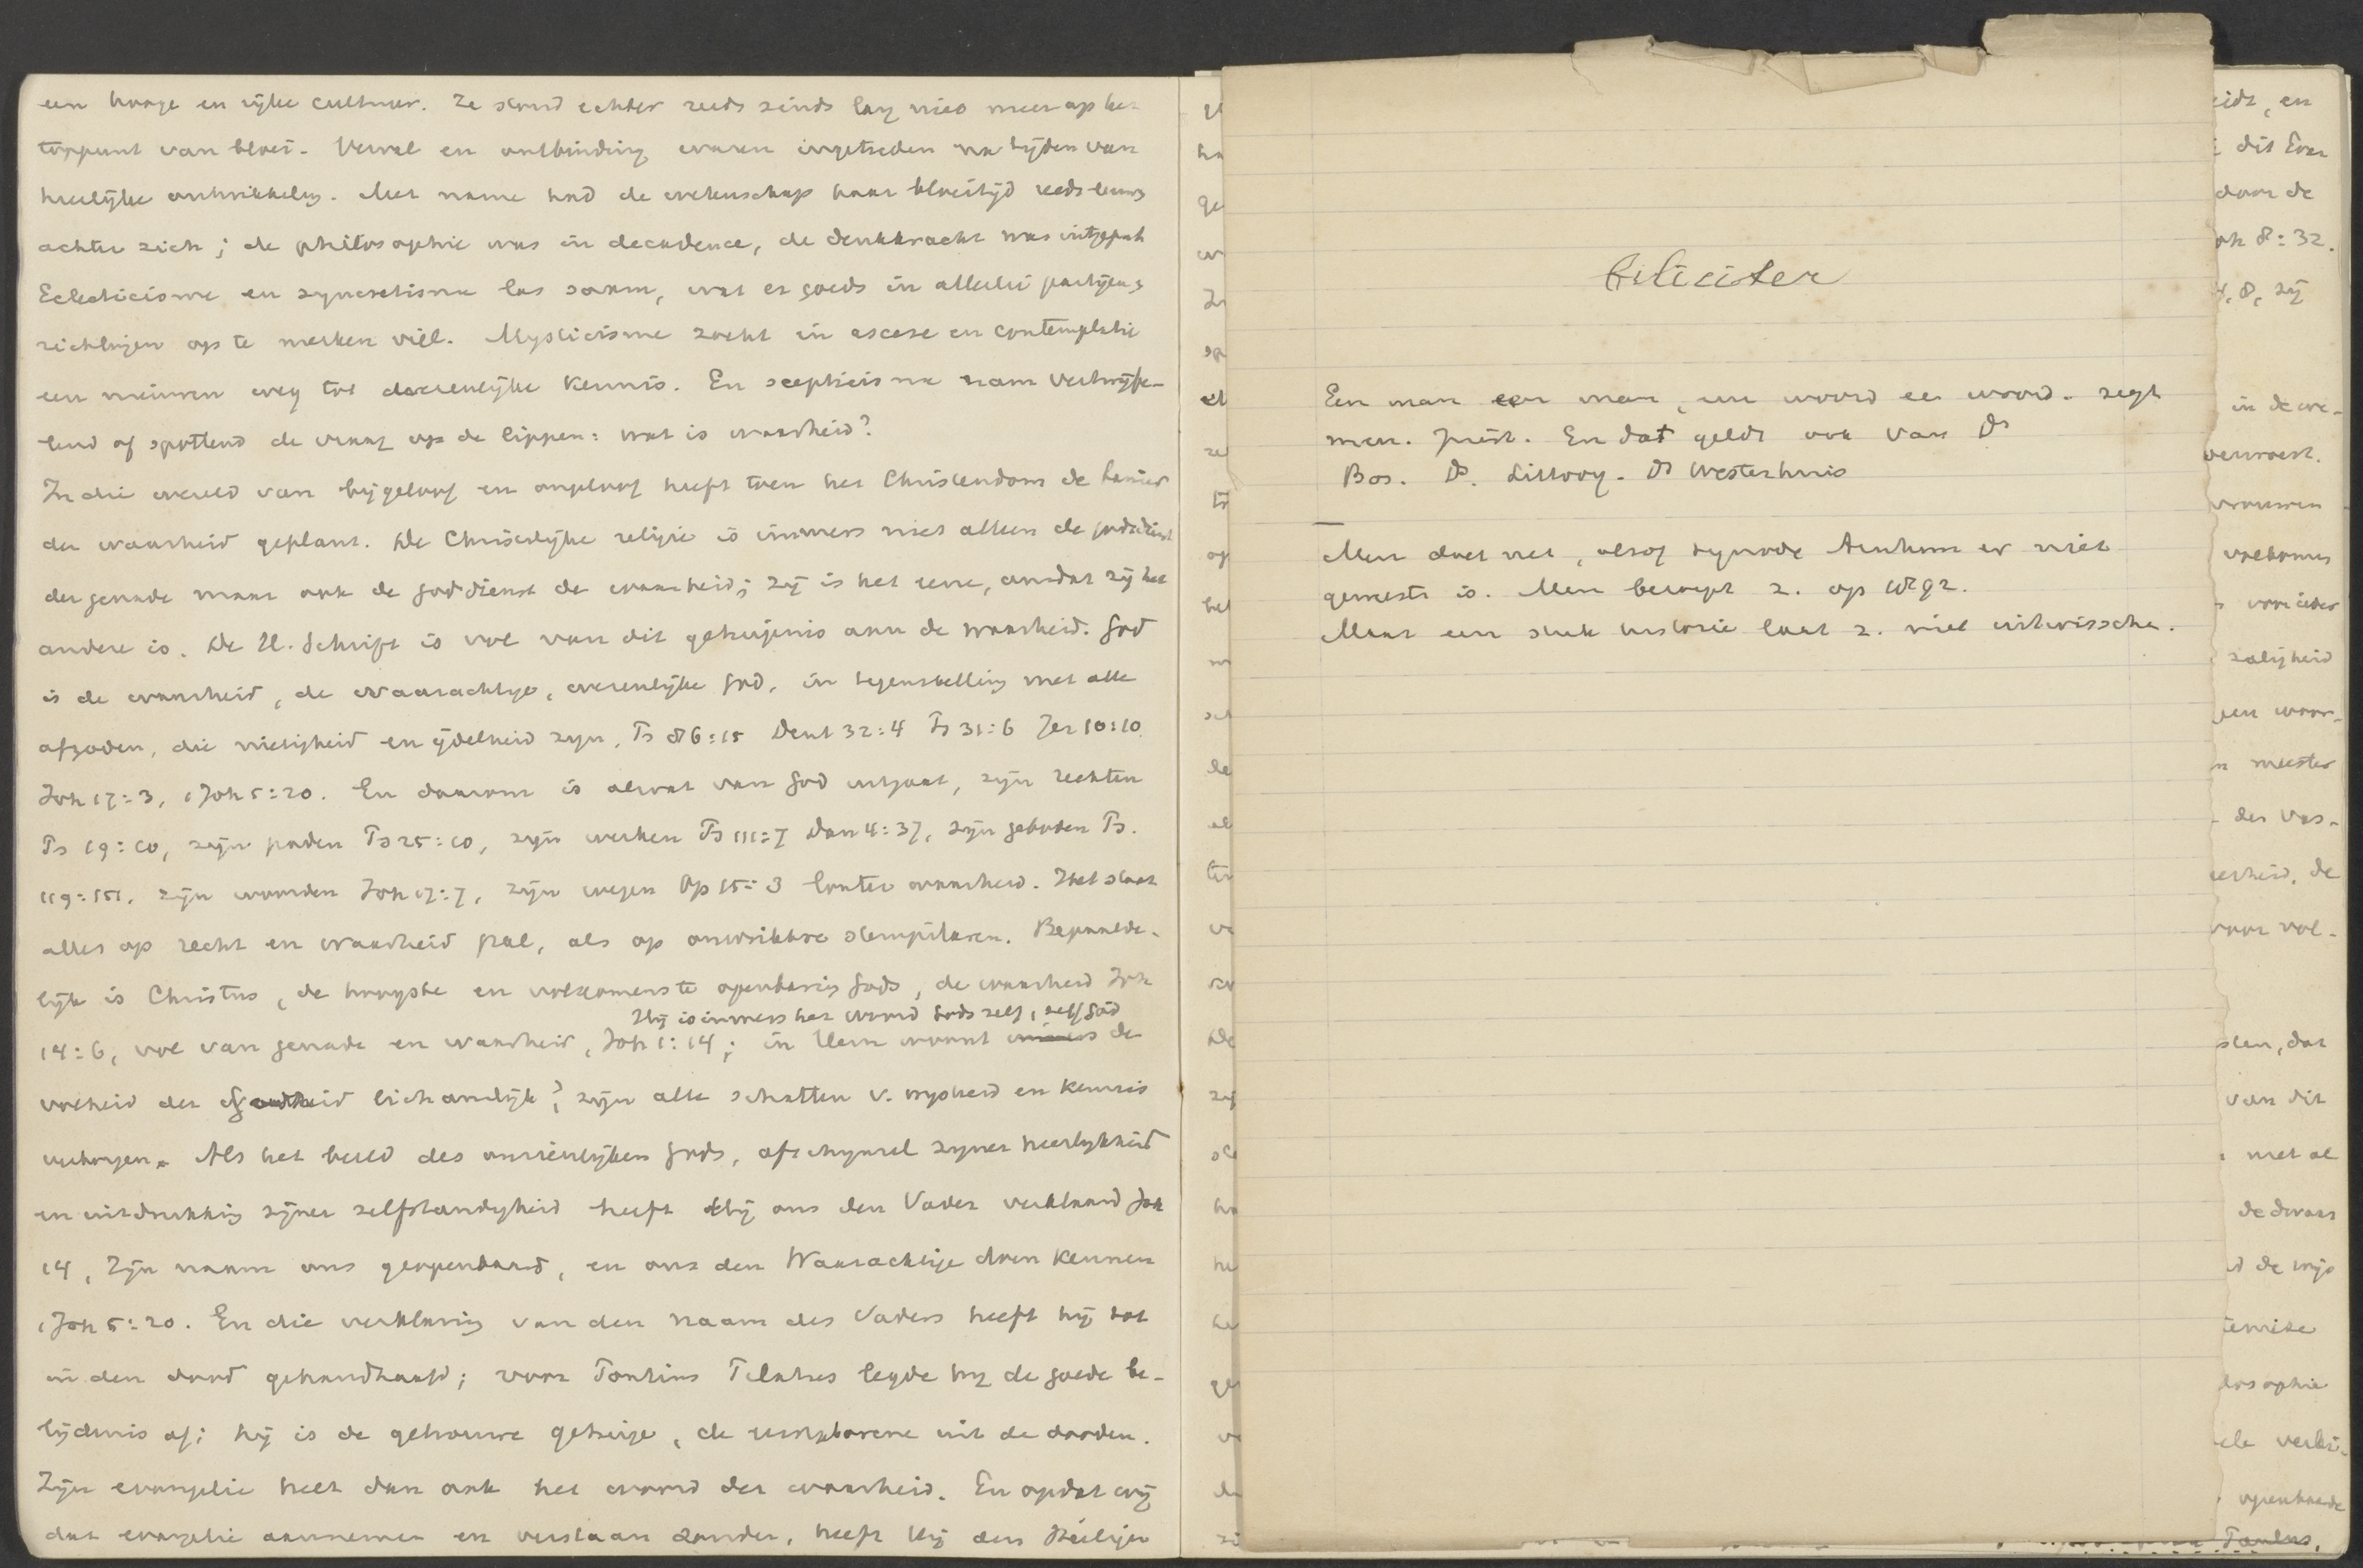 een hooge en rijke cultuur. Ze stond echter reeds sinds lang niet meer op het
toppunt van bloei. Verval en ontbinding waren ingetreden na tijden van
heerlijke ontwikkeling. Met name had de wetenschap haar bloeitijd reeds lang
achter zich; de philosophie was in decadence, de denkkracht was uitgeput
Eclecticisme en syncretisme las saam, wat er goeds in allerlei partijen &
richtingen op te merken viel. Mysticisme zocht in ascese en contemplatie
een nieuwen weg tot de wezenlijke kennis. En scepticisme nam vertwijfe-
lend of spottend de vraag op de lippen: wat is waarheid?
In die wereld van bijgeloof en ongeloof heeft toen het Christendom de banier
der waarheid geplant. De Christelijke religie is immers niet alleen de godsdienst
der genade maar ook de godsdienst der waarheid; zij is het eene, omdat zij het
andere is. De H. Schrift is vol van dit getuigenis aan de waarheid. God
is de waarheid, de waarachtige, wezenlijke God, in tegenstelling met alle
afgoden, die nietigheid en ijdelheid zijn, Ps 86:15 Deut 32:4 Ps 31:6 Jer 10:10
Joh 17:3, 1 Joh 5:20. En daarom is alwat van God uitgaat, zijn rechten
Ps 19:10, zijn paden Ps 25:10, zijn werken Ps 111:7 Dan 4:37, zijn geboden Ps.
119:151, zijn woorden Joh 17:7, zijn wegen Op 15:3 louter waarheid. Het staat
alles op recht en waarheid pal, als op onwrikbre steunpilaren. Bepaalde-
lijk is Christus, de hoogste en volkomenste openbaring Gods, de waarheid Joh
Hij is immers het woord Gods zelf, zelf God
14:6, vol van genade en waarheid, Joh 1:14; in Hem woont immers de
volheid der Godheid lichamelijk; zijn alle schatten v. wijsheid en kennis
verborgen. Als het beeld des onzienlijken Gods, afschijnsel zijner heerlijkheid
en uitdrukking zijner zelfstandigheid heeft Hij ons den Vader verklaard Joh
14, Zijn naam ons geopenbaard, en ons den Waarachtige doen kennen
1 Joh 5:20. En die verklaring van den naam des Vaders heeft hij tot
in den dood gehandhaafd; voor Pontius Pilatus legde hij de goede be-
lijdenis af; hij is de getrouwe getuige, de eerstgeborene uit de dooden.
Zijn evangelie heet dan ook het woord der waarheid. En opdat wij
dat evangelie aannemen en verstaan zouden, heeft Hij den Heiligen
Feliciter
Een man een man, een woord een woord. zegt
men. Juist. En dat geldt ook van Ds
Bos. Ds. Littooy. Ds Westerhuis
Men doet net, alsof synode Arnhem er niet
geweest is. Men beroept z. op 
Maar een stuk historie laat z. niet uitwisschen.
eidt, en
dit Evan
door de
Joh 8:32.
zij
in de we-
verwoest.
vrouwen
volkomen
voor ieder
zaligheid
een waar-
meester
der vas-
de
voor vol-
dat
van dit
met al
de dwaas
de wijs
losophie
openbaarde
Paulus,